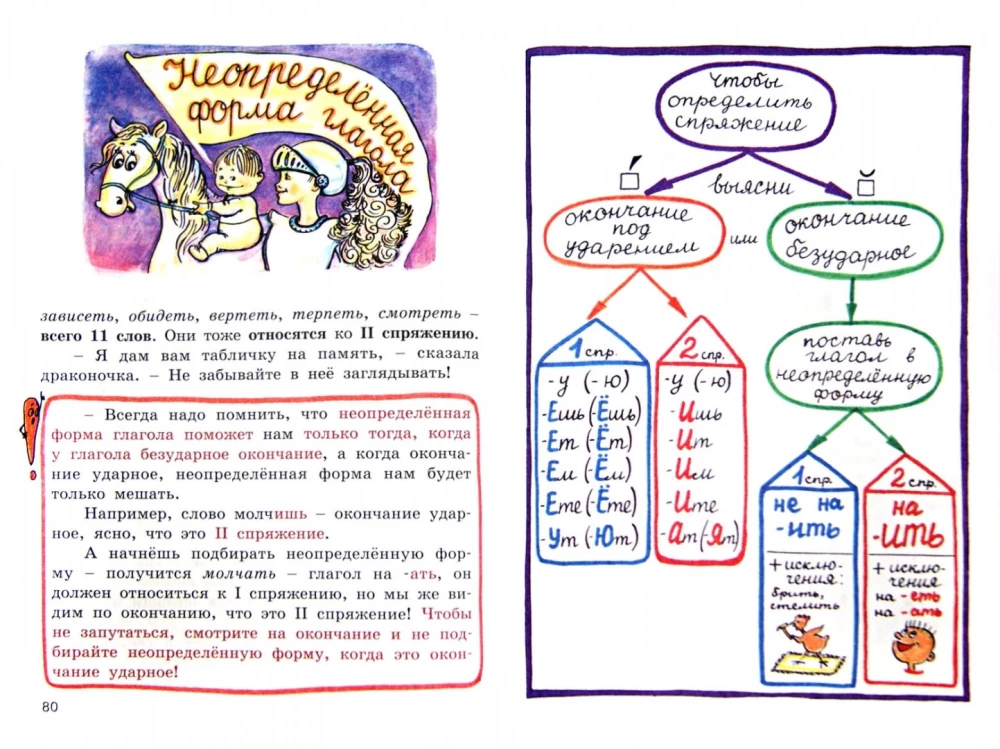 Неопределённая
форма глагола
зависеть, обидеть, вертеть, терпеть, смотреть –
всего 11 слов. Они тоже относятся ко II спряжению.
– Я дам вам табличку на память, – сказала
драконочка. – Не забывайте в неё заглядывать!
– Всегда надо помнить, что неопределённая
форма глагола поможет нам только тогда, когда
у глагола безударное окончание, а когда оконча-
ние ударное, неопределённая форма нам будет
только мешать.
Например, слово молчишь – окончание удар-
ное, ясно, что это II спряжение.
А начнёшь подбирать неопределённую фор-
му – получится молчать – глагол на -ать, он
должен относиться к I спряжению, но мы же ви-
дим по окончанию, что это II спряжение! Чтобы
не запутаться, смотрите на окончание и не под-
бирайте неопределённую форму, когда это окон-
чание ударное!
80
Чтобы
определить
спряжение
выясни
окончание
под
ударением
или
окончание
безударное
1 спр.
-у (-ю)
-Ешь (-Ёшь)
-Ет (-Ёт)
-Ем (-Ём)
-Ете (-Ёте)
-Ут (-Ют)
2 спр.
-у (-ю)
-Ишь
-Ит
-Им
-Ите
-Ат (-Ят)
поставь
глагол в
неопределённую
форму
1 спр.
не на
-ить
+ исклю-
чения:
брить,
стелить
2 спр.
на
-ИТЬ
+ исклю-
чения
на -еть
на -ать